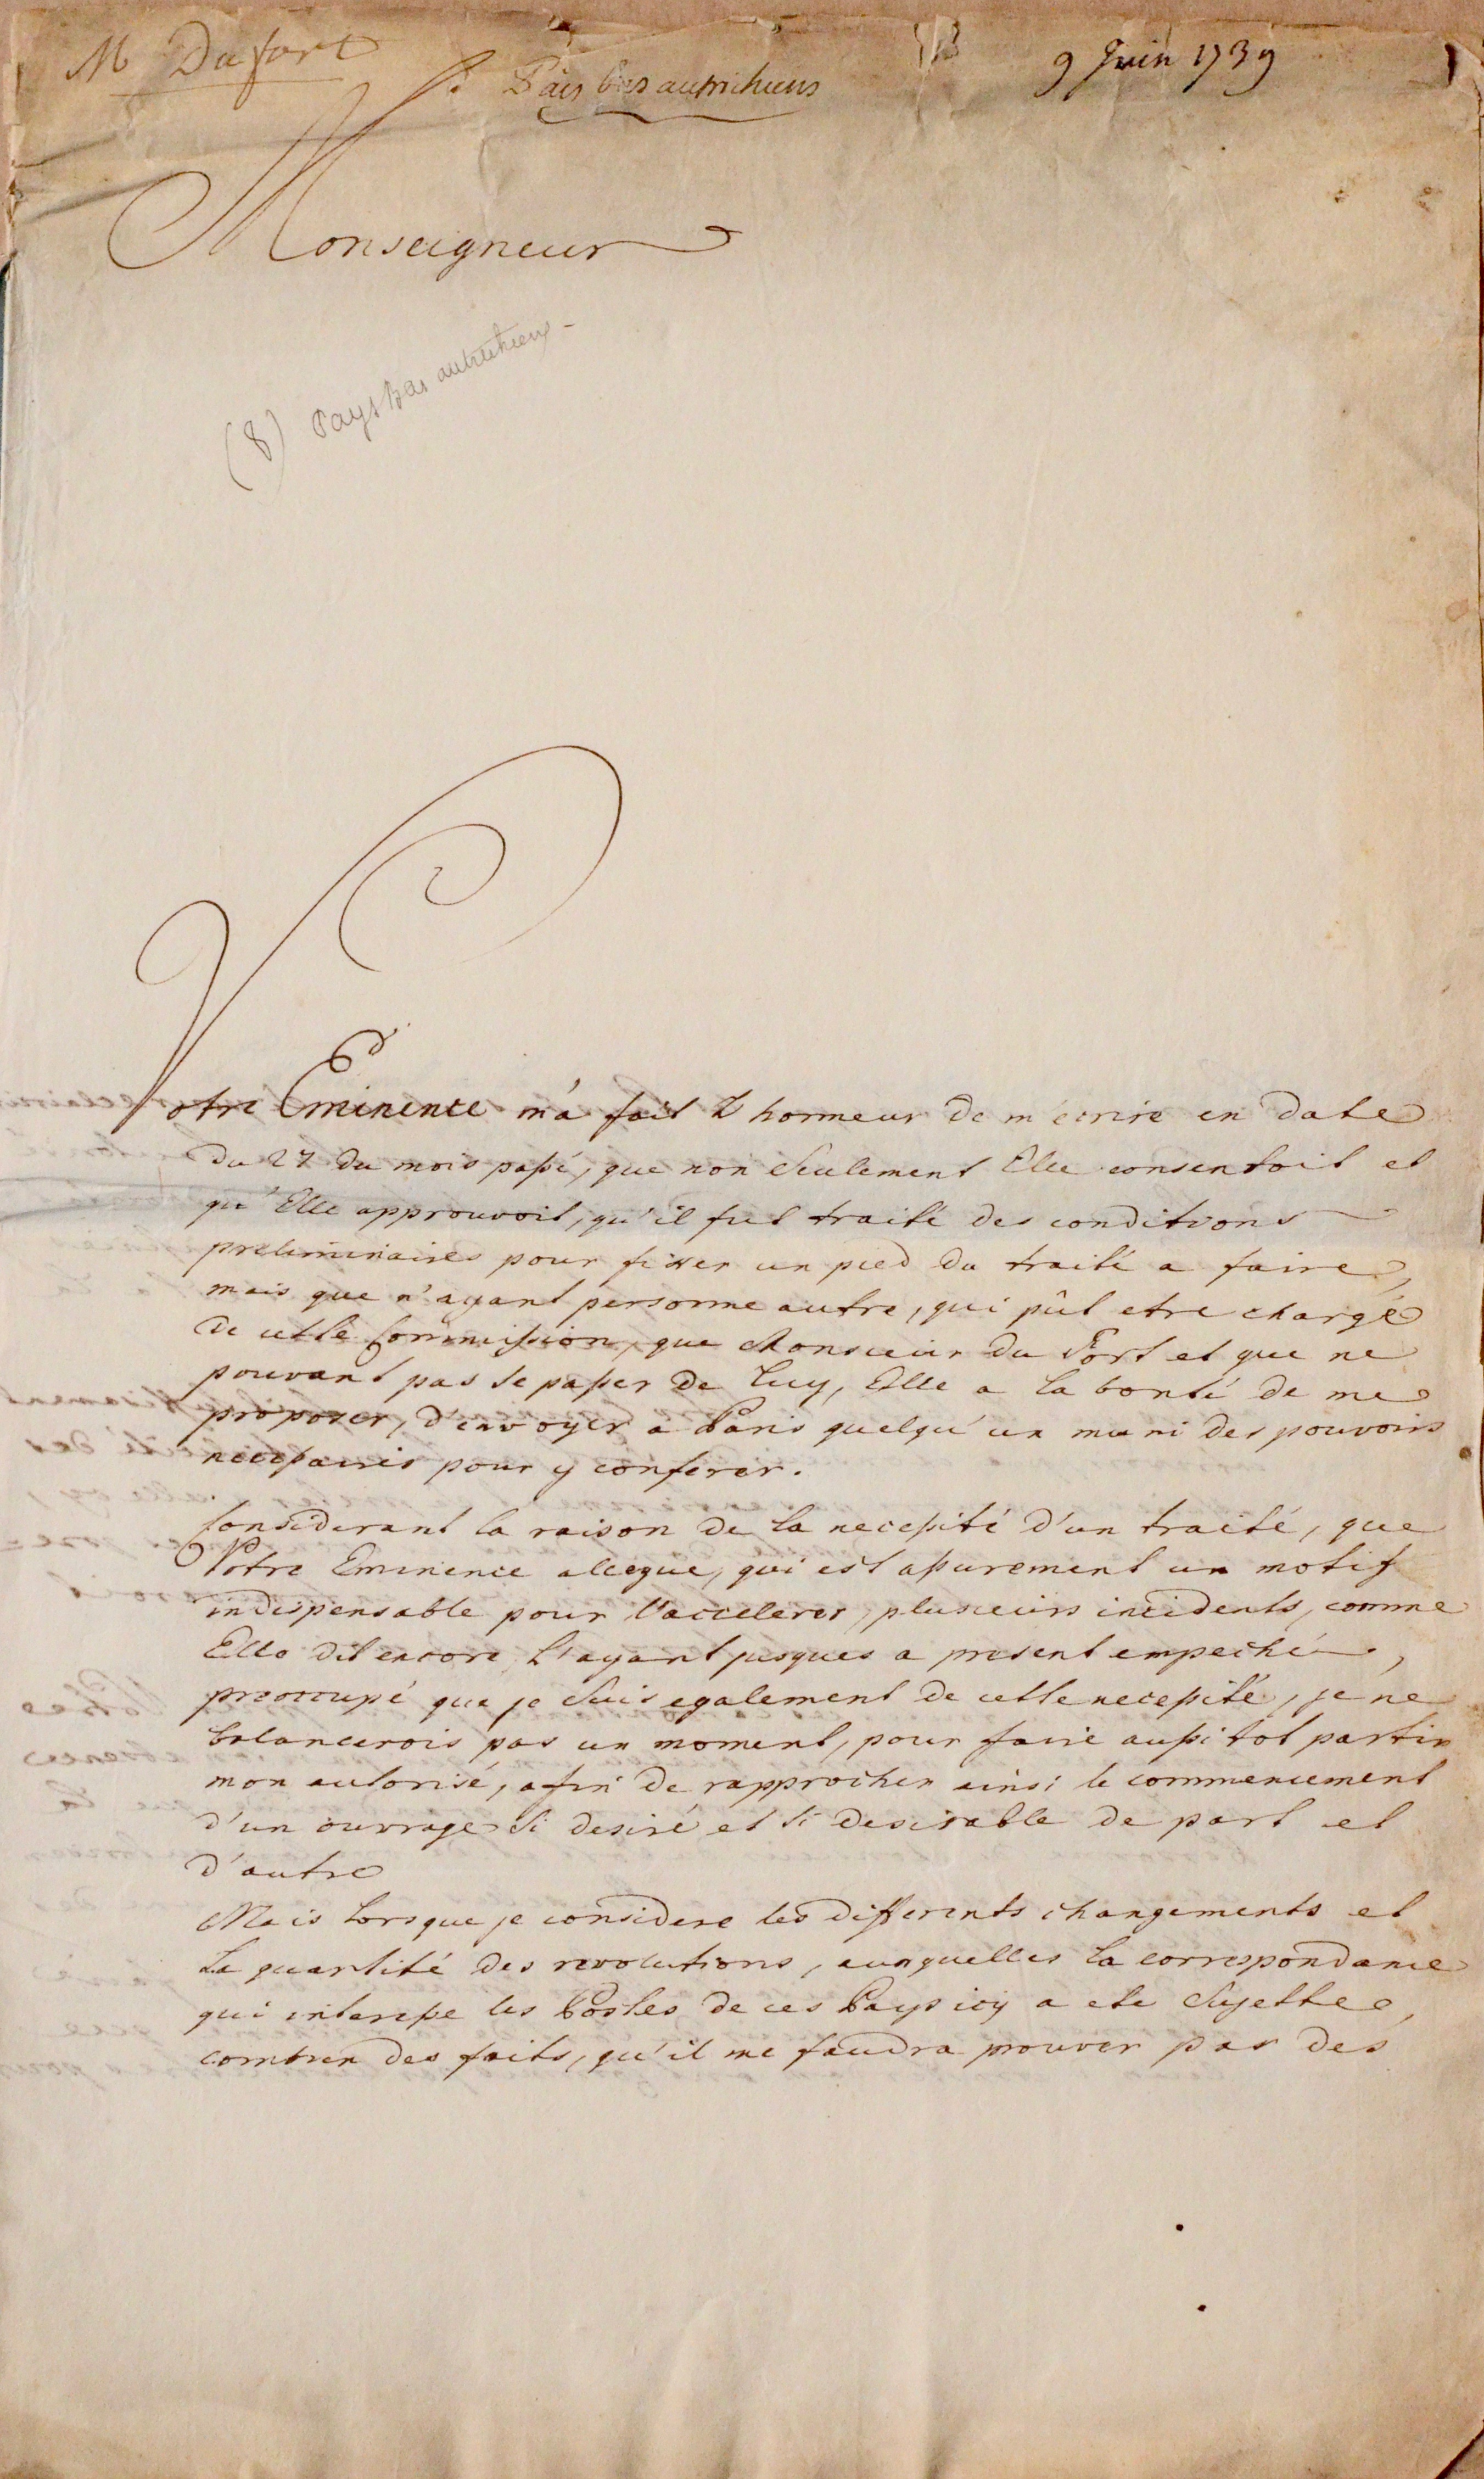 M Dufort
Païs bas autrichiens
9 Juin 1739
Monseigneur
(8) Pays bas autrichiens -
Votre Eminence m'a fait l'honneur de m'écrire en date
du 27 du mois passé, que non seulement Elle consentoit et
qu'Elle approuvoit, qu'il fut traité des conditions
preliminaires pour fixer un pied du traité a faire,
mais que n'ayant personne autre, qui pût etre chargé
de cette Commission, que Monsieur du Fort et que ne
pouvant pas se passer de luy, Elle a la bonté de me
proposer, d'envoyer à Paris quelqu'un muni des pouvoirs
necessaires pour y conferer.
Considerant la raison de la necessité d'un traité, que
Votre Eminence allegue, qui est assurement un motif
indispensable pour l'accelerer, plusieurs incidents, comme
Elle dit encore, l'ayant jusques a present empeché,
preoccupé que je suis egalement de cette necessité, je ne
balancerois pas un moment, pour faire aussi tot partir
mon autorisé, afin de rapprocher ainsi le commencement
d'un ouvrage si desiré et si desirable de part et
d'autre
Mais lorsque je considere les differents changements et
la quantité des revolutions, auxquelles la correspondance
qui interesse les Postes de ces Pays icy a ete sujettee,
combien des faits, qu'il me faudra prouver par des